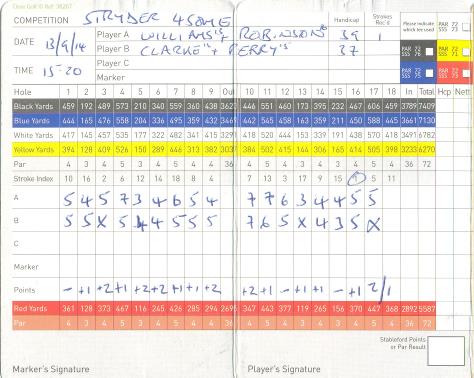 COMPETITION STRYDER 4SOME
Handicap Strokes Rec'd
Please indicate which tee used
DATE 13/9/14
Player A WILLIAMS + ROBINSON 39 1
Player B CLARKE + PERRY 37
Player C
TIME 15-20
Marker
PAR 72
Hole 1 2 3 4 5 6 7 8 9 Out 10 11 12 13 14 15 16 17 18 In Total Hcp Nett
Black Yards 459 192 489 573 210 340 559 360 438 3620 446 551 460 173 395 232 467 606 459 3789 7409
Blue Yards 444 165 476 558 204 336 495 359 432 3469 442 545 458 163 359 211 450 588 445 3661 7130
White Yards 417 145 458 537 175 322 482 341 415 442 518 420 154 444 339 191 438 570 418 3491 6782
Yellow Yards 394 128 409 526 150 289 446 313 382 3037 384 502 415 144 306 165 414 505 398 3233 6270
Par 4 3 4 5 3 4 5 4 4 36 4 5 4 3 4 3 4 5 4 36 72
Stroke Index 10 16 4 2 12 14 18 8 4 7 13 3 17 9 15 1 5 11
A 5 4 5 7 3 4 6 5 4 7 7 6 3 4 4 5 5
B 5 5 X 5 4 4 5 5 5 7 6 5 X 4 3 5 X
C
Marker
Points - +1 +2 +1 +2 +2 +1 +1 +2 +2 +1 - +1 2/1
Red Yards 361 128 373 467 116 245 426 285 294 2695 347 443 377 119 265 156 370 447 368 2892 5587
Par 4 3 4 5 3 4 5 4 4 36 4 5 4 3 4 3 4 5 4 36 72
Stableford Points or Par Result
Marker's Signature
Player's Signature